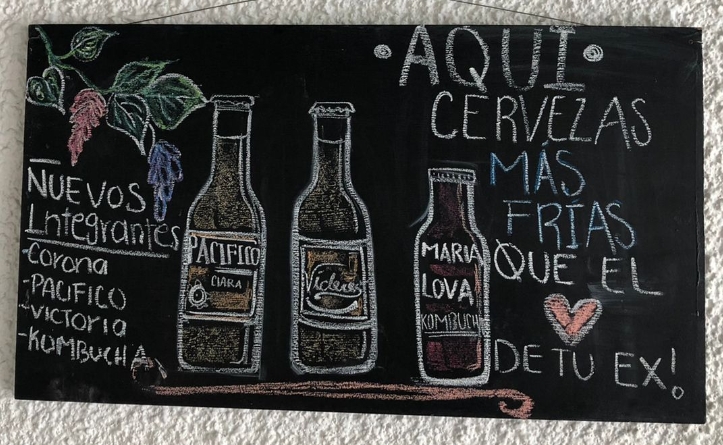 NUEVOS
Integrantes
-Corona
-PACIFICO
-VICTORIA
-KOMBUCHA
PACIFICO
CLARA
MARIA
LOVA
KOMBUCH
·AQUI·
CERVEZAS
MÁS
FRÍAS
QUE EL
DE TU EX!